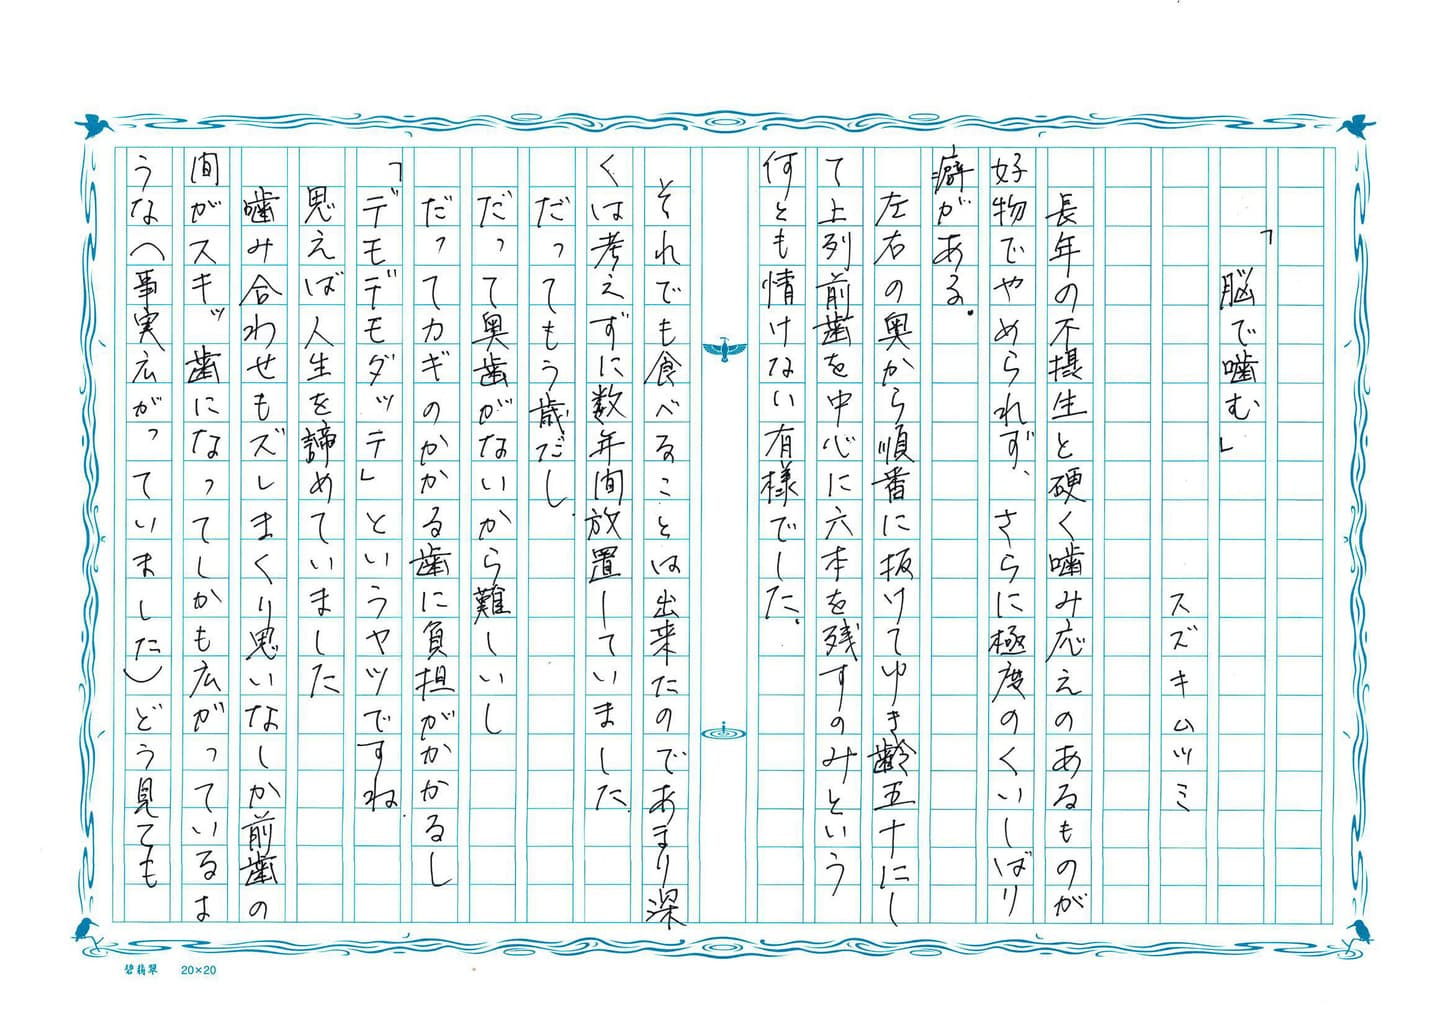 「脳で噛む」
スズキムツミ
長年の不摂生と硬く噛み応えのあるものが
好物でやめられれず、さらに極度のくいしばり
癖がある。
左右の奥から順番に抜けてゆき齢五十にし
て上列前歯を中心に六本を残すのみという
何とも情けない有様でした。
それでも食べることは出来たのであまり深
くは考えずに数年間放置していました
だってもう歳だし
だって奥歯がないから難しいし
だってカギのかかる歯に負担がかかるし
「デモデモダッテ」というヤツですね
思えば人生を諦めていました
噛み合わせもズレまくり思いなしか前歯の
間がスキッ歯になってしかも広がっているよ
うな(事実広がっていました)どう見ても
碧翡翠 20×20